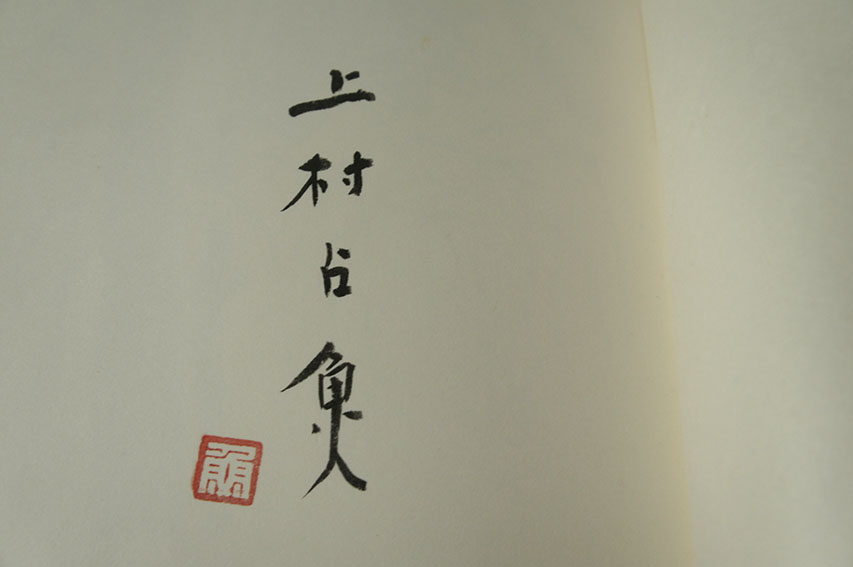 上村占魚